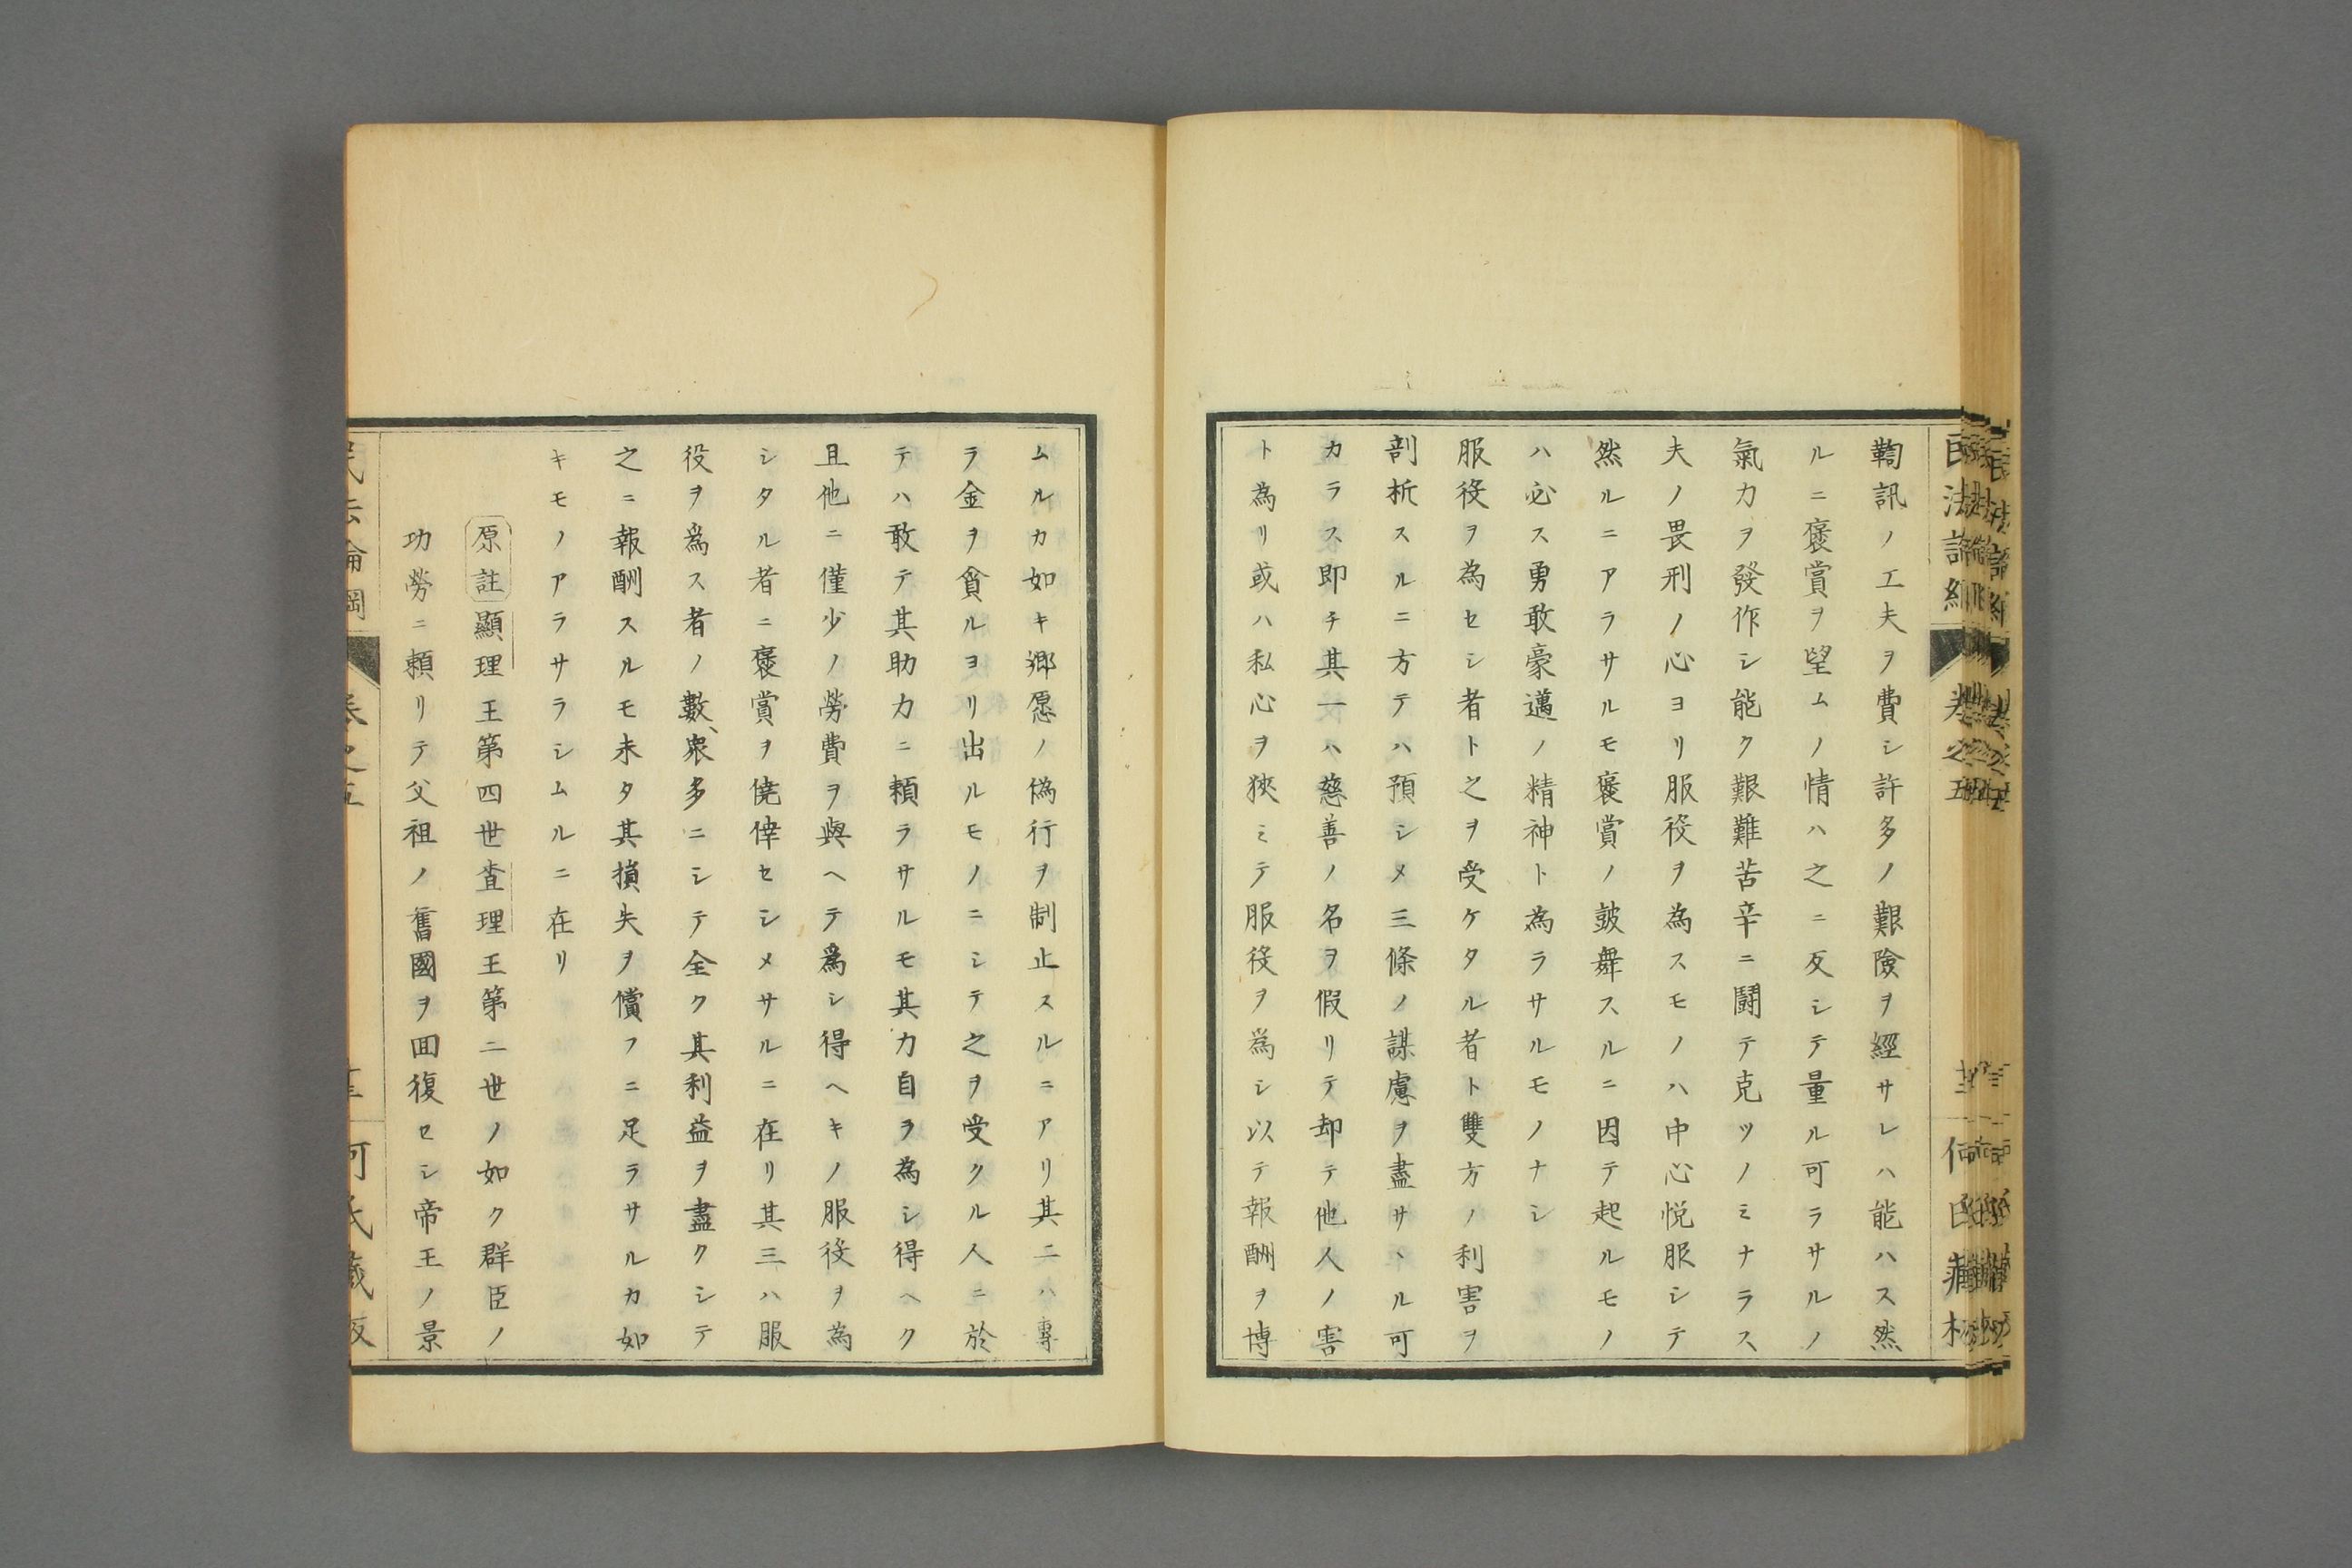 鞫訊ノ工夫ヲ費シ許多ノ艱險ヲ經サレハ能ハス然
ルニ褒賞ヲ望ムノ情ハ之ニ反シテ量ル可ラサルノ
氣力ヲ發作シ能ク艱難苦辛ニ鬪テ克ツノミナラス
夫ノ畏刑ノ心ヨリ服役ヲ為スモノハ中心悦服シテ
然ルニアラサルモ褒賞ノ皷舞スルニ因テ起ルモノ
ハ必ス勇敢豪邁ノ精神ト為ラサルモノナシ
服役ヲ為セシ者ト之ヲ受ケタル者ト雙方ノ利害ヲ
剖析スルニ方テハ預シメ三條ノ謀慮ヲ盡サヽル可
カラス即チ其一ハ慈善ノ名ヲ假リテ却テ他人ノ害
ト為リ或ハ私心ヲ狹ミテ服役ヲ為シ以テ報酬ヲ博
ムルカ如キ郷愿ノ偽行ヲ制止スルニアリ其二ハ專
ラ金ヲ貪ルヨリ出ルモノニシテ之ヲ受クル人ニ於
テハ敢テ其助力ニ頼ラサルモ其力自ヲ為シ得ヘク
且他ニ僅少ノ勞費ヲ與ヘテ爲シ得ヘキノ服役ヲ為
シタル者ニ褒賞ヲ僥倖セシメサルニ在リ其三ハ服
役ヲ爲ス者ノ數、衆多ニシテ全ク其利益ヲ盡クシテ
之ニ報酬スルモ未タ其損失ヲ償フニ足ラサルカ如
キモノアラサラシムルニ在リ
原註顯理王第四世査理王第二世ノ如ク群臣ノ
功勞ニ頼リテ父祖ノ舊國ヲ囬復セシ帝王ノ景